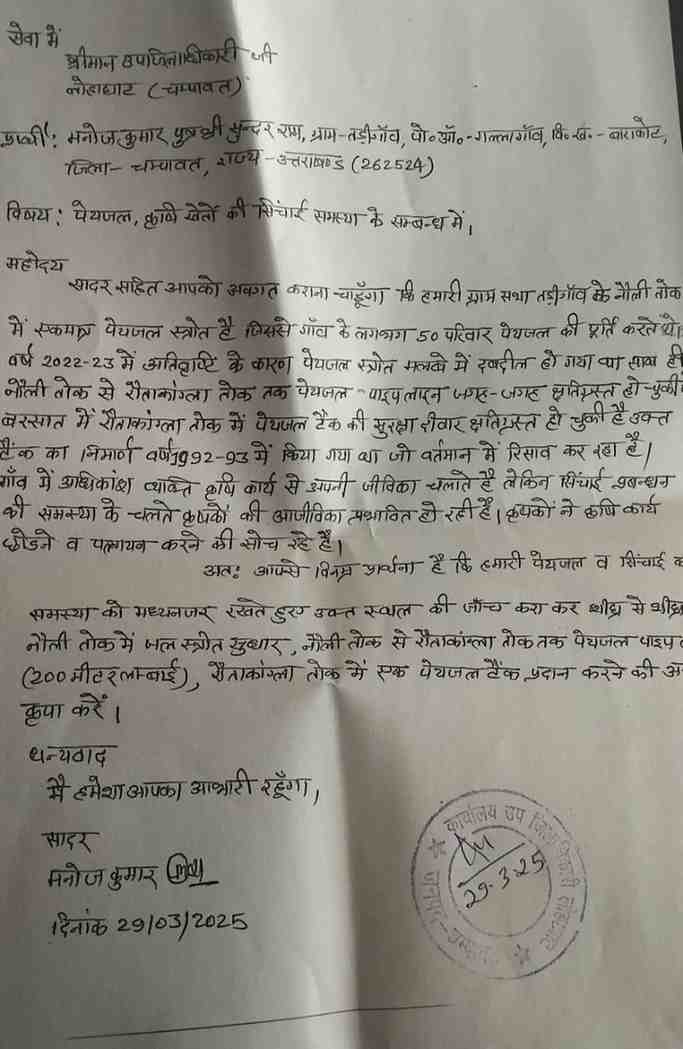 सेवा में
श्रीमान उपजिलाधिकारी जी
लोहाघाट (चम्पावत)
प्रार्थी: मनोज कुमार पुत्र श्री सुन्दर राम, ग्राम-तड़ीगाँव, पो०ऑ०-गल्लागाँव, वि०ख०-बाराकोट,
जिला-चम्पावत, राज्य-उत्तराखण्ड (262524)
विषय: पेयजल, कृषि खेतों की सिंचाई समस्या के सम्बन्ध में।
महोदय
सादर सहित आपको अवगत कराना चाहूँगा कि हमारी ग्राम सभा तड़ीगाँव के नौली तोक
में एकमात्र पेयजल स्त्रोत है जिससे गाँव के लगभग 50 परिवार पेयजल की पूर्ति करते थे।
वर्ष 2022-23 में अतिवृष्टि के कारण पेयजल स्त्रोत मलबे में तब्दील हो गया था साथ ही
नौली तोक से रौताकांग्ला तोक तक पेयजल पाइपलाइन जगह-जगह क्षतिग्रस्त हो चुकी
बरसात में रौताकांग्ला तोक में पेयजल टैंक की सुरक्षा दीवार क्षतिग्रस्त हो चुकी है उक्त
टैंक का निमार्ण वर्ष 1992-93 में किया गया था जो वर्तमान में रिसाव कर रहा है।
गाँव में अधिकांश व्यक्ति कृषि कार्य से अपनी जीविका चलाते है लेकिन सिंचाई प्रबन्धन
की समस्या के चलते कृषकों की आजीविका प्रभावित हो रही है। कृषकों ने कृषि कार्य
छोडने व पलायन करने की सोच रहे है।
अतः आपसे विनम्र प्रार्थना है कि हमारी पेयजल व सिंचाई
समस्या को मध्यनजर रखते हुए उक्त स्थल की जाँच करा कर शीघ्र से शीघ्र
नौली तोक में जल स्त्रोत सुधार, नौली तोक से रौताकांग्ला तोक तक पेयजल पाइप
(200 मीटर लम्बाई), रौताकांग्ला तोक में एक पेयजल टैंक प्रदान करने की
कृपा करें।
धन्यवाद
मै हमेशा आपका आभारी रहूँगा।
सादर
मनोज कुमार
दिनांक 29/03/2025
कार्यालय उप जिलाधिकारी लोहाघाट
जनपद-चम्पावत
29.3.25